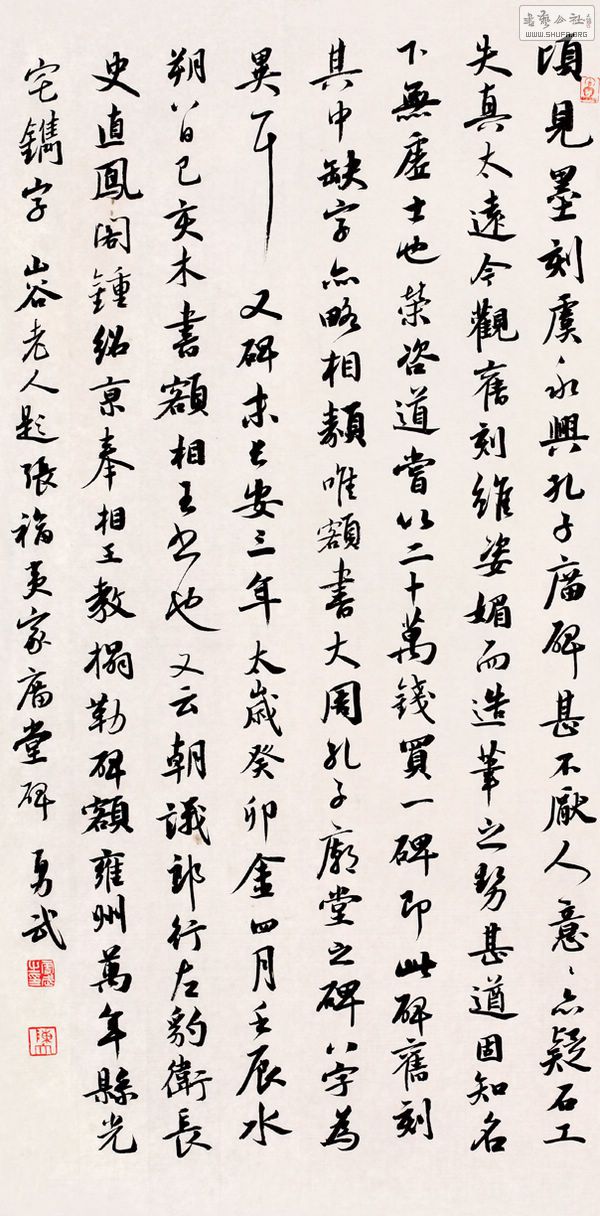 頃見墨刻虞永興孔子廟碑甚不厭人意意亦疑石工
失真太遠今觀舊刻維姿媚而造筆之勢甚遒固知名
下無虛士也榮咨道嘗以二十萬錢買一碑即此碑舊刻
其中缺字亦略相類唯額書大周孔子廟堂之碑八字為
異耳 又碑末長安三年太歲癸卯金四月壬辰水
朔八日己亥木書額相王書也又云朝議郎行左豹衛長
史直鳳閣鍾紹京奉相王教搨勒碑額雍州萬年縣光
宅鐫字 山谷老人題張福夷家廟堂碑 勇武
書藝公社
WWW.SHUFA.ORG